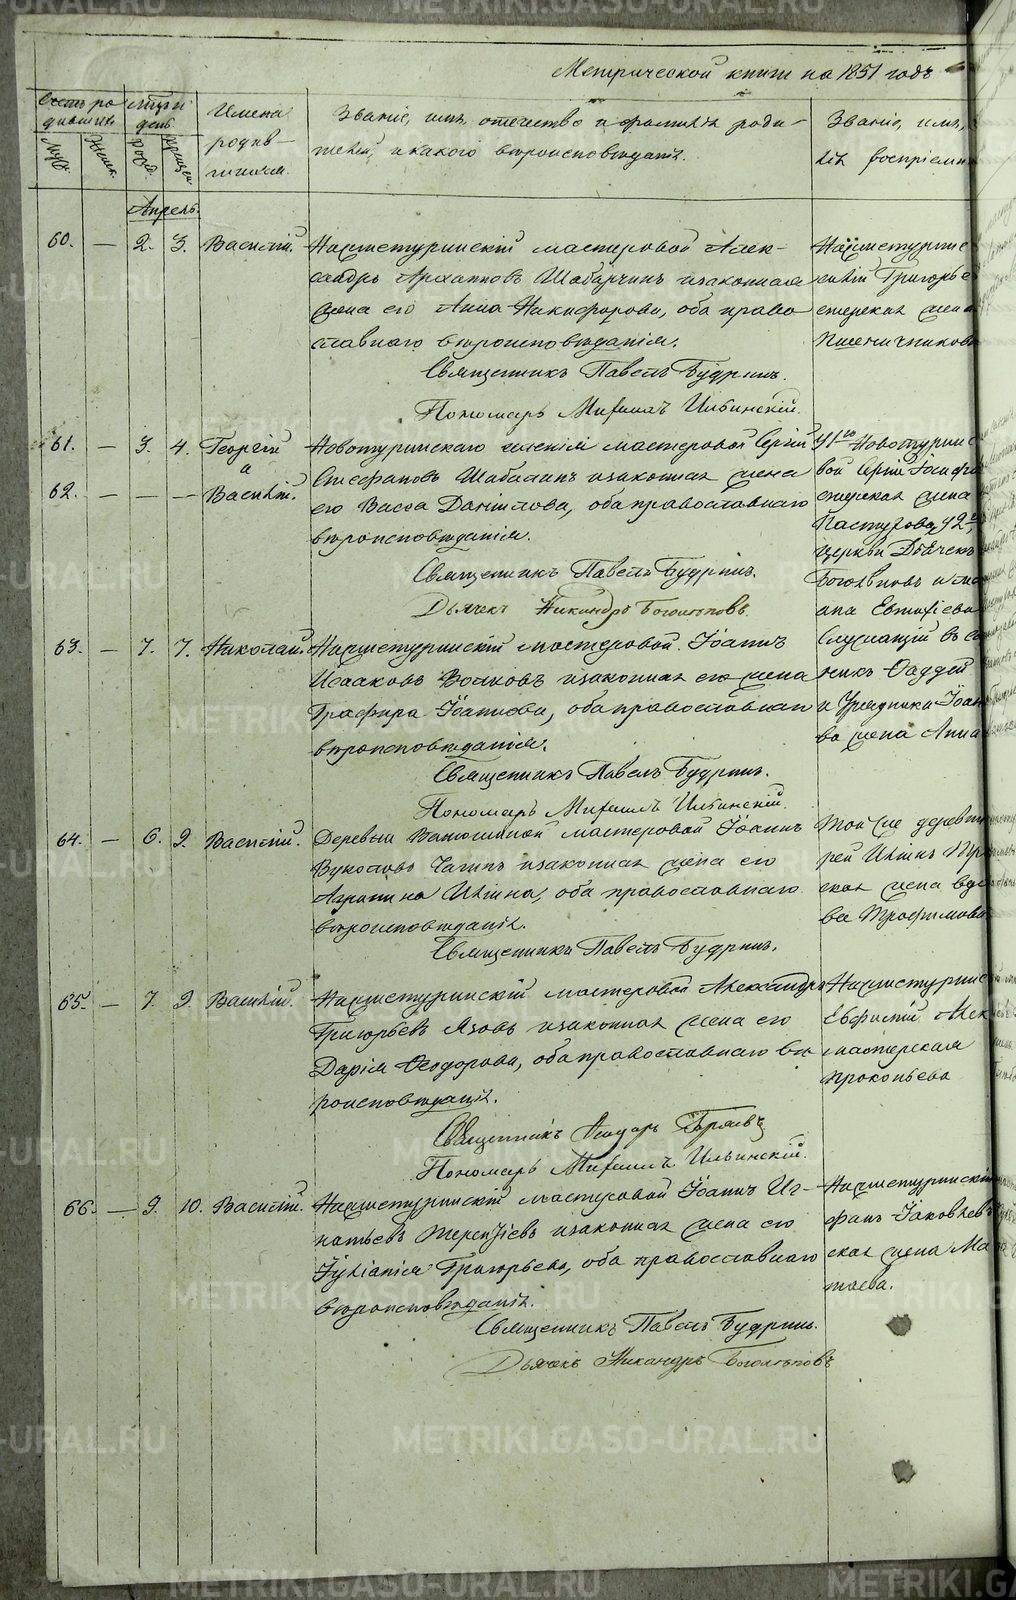 METRIKI.GASO-URAL.RU
Метрической книги на 1851 годъ
Счетъ родившихся
Муж. Женс.
Мѣсяцъ и день
рожд. крещен.
Имена родив-
шихся.
Званіе, имя, отечество и фамилія роди-
телей, и какого вѣроисповѣданія.
Званіе, имя,
лія воспріемни
Апрель.
60. — 2. 3. Василій.
Нижнетуринскій мастеровой Алек-
сандръ Архиповъ и законная
жена его Анна Никифорова, оба право
славнаго вѣроисповѣданія.
Священникъ Павелъ Будринъ.
Пономарь Михаилъ Ильинскій.
Нижнетуринс
скій Григорье
стерская жена
Пшеничникова
61. — 3. 4. Георгій
и
62. — — — Василій.
Новотуринскаго селенія мастеровой Сергій
Стефановъ Шабалинъ и законная жена
его Васса Даніилова, оба православнаго
вѣроисповѣданія.
Священникъ Павелъ Будринъ.
Дьячекъ Никандръ Боголѣповъ.
У 1го Новотуринс
вой Сергій Іосифо
стерская жена
Пастухова, у 2го
церкви Дьячекъ
Боголѣповъ и
Евтихіева
63. — 7. 7. Николай.
Нижнетуринскій мастеровой Іоаннъ
Исааковъ Волковъ и законная его жена
Глафира Іоаннова, оба православнаго
вѣроисповѣданія.
Священникъ Павелъ Будринъ.
Пономарь Михаилъ Ильинскій.
Служащій въ
Фаддей
и Урядника Іоан
ва жена Анна
64. — 6. 9. Василій.
Деревни мастеровой Іоаннъ
Вуколовъ и законная жена его
Агрипина Ильина, оба православнаго
вѣроисповѣданія.
Священникъ Павелъ Будринъ.
Той же деревни
рей Ильинъ
ская жена
ва Трофимова
65. — 7. 9. Василій.
Нижнетуринскій мастеровой Александръ
Григорьевъ Язовъ и законная жена его
Дарія Ѳеодорова, оба православнаго вѣ
роисповѣданія.
Священникъ Ѳеодоръ
Пономарь Михаилъ Ильинскій.
Нижнетуринс
Алек
мастерская
Прокопьева
66. — 9. 10. Василій.
Нижнетуринскій мастеровой Іоаннъ Иг-
натьевъ Терентіевъ и законная жена его
Іуліанія Григорьева, оба православнаго
вѣроисповѣданія.
Священникъ Павелъ Будринъ.
Дьячекъ Никандръ Боголѣповъ
Нижнетуринскій
фанъ Іаковлев
ская жена Ма
таева.